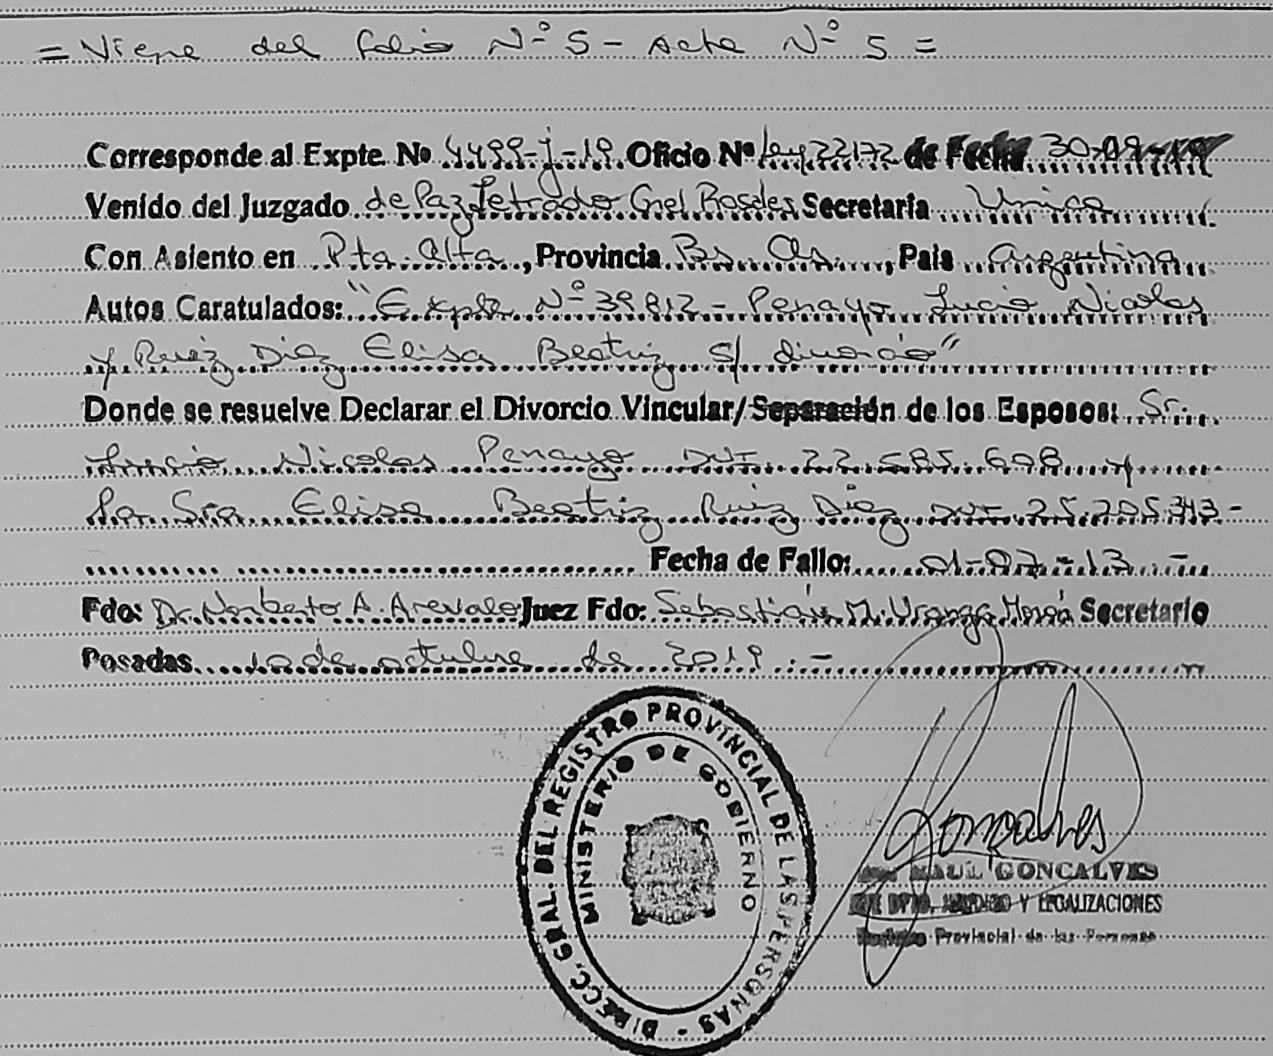 = Viene del folio Nº 5 - Acta Nº 5 =
Corresponde al Expte. Nº 4499-J-19. Oficio Nº ley 22172 de Fecha 30-09-19
Venido del Juzgado de Paz Letrado Cnel Rosales Secretaria Unica
Con Asiento en Pta. Alta, Provincia Bs. As., Pais Argentina
Autos Caratulados: "Expte Nº 39.812 - Penayo Lucio Nicolas
y Ruiz Diaz Elisa Beatriz s/ divorcio"
Donde se resuelve Declarar el Divorcio Vincular/Separación de los Esposos: Sr.
Lucio Nicolas Penayo DNI. 22.585.698 y
la Sra Elisa Beatriz Ruiz Diaz DNI. 25.205.343-
Fecha de Fallo: 01-07-13 -
Fdo: Dr. Norberto A. Arevalo Juez Fdo: Sebastián M. Uranga Morán Secretario
Posadas 10 de octubre de 2019 . -
DIRECC. GRAL. DEL REGISTRO PROVINCIAL DE LAS PERSONAS -
MINISTERIO DE GOBIERNO
Goncalves
RAUL GONCALVES
DPTO. Y LEGALIZACIONES
Provincial de las Personas